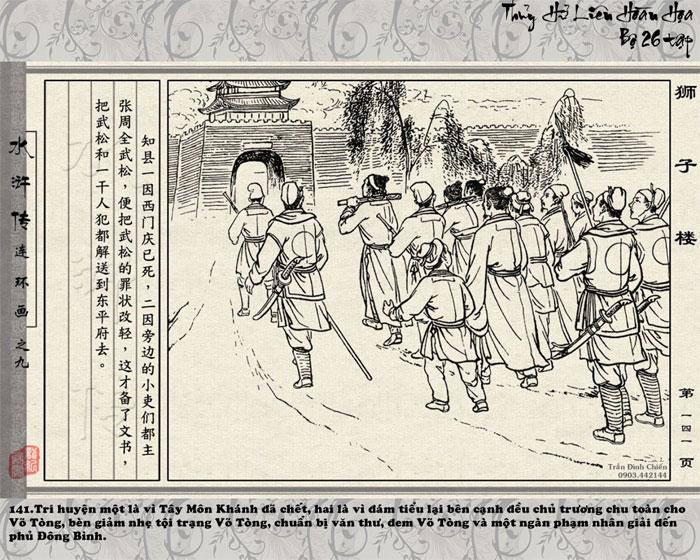 Thủy Hử Liên Hoàn Họa
Bộ 26 tập
狮子楼
第一四一页
知县一因西门庆已死，二因旁边的小吏们都主
张周全武松，便把武松的罪状改轻，这才备了文书，
把武松和一干人犯都解送到东平府去。
水浒传连环画之九
Trần Đình Chiến
0903.442144
141.Tri huyện một là vì Tây Môn Khánh đã chết, hai là vì đám tiểu lại bên cạnh đều chủ trương chu toàn cho
Võ Tòng, bèn giảm nhẹ tội trạng Võ Tòng, chuẩn bị văn thư, đem Võ Tòng và một ngàn phạm nhân giải đến
phủ Đông Bình.